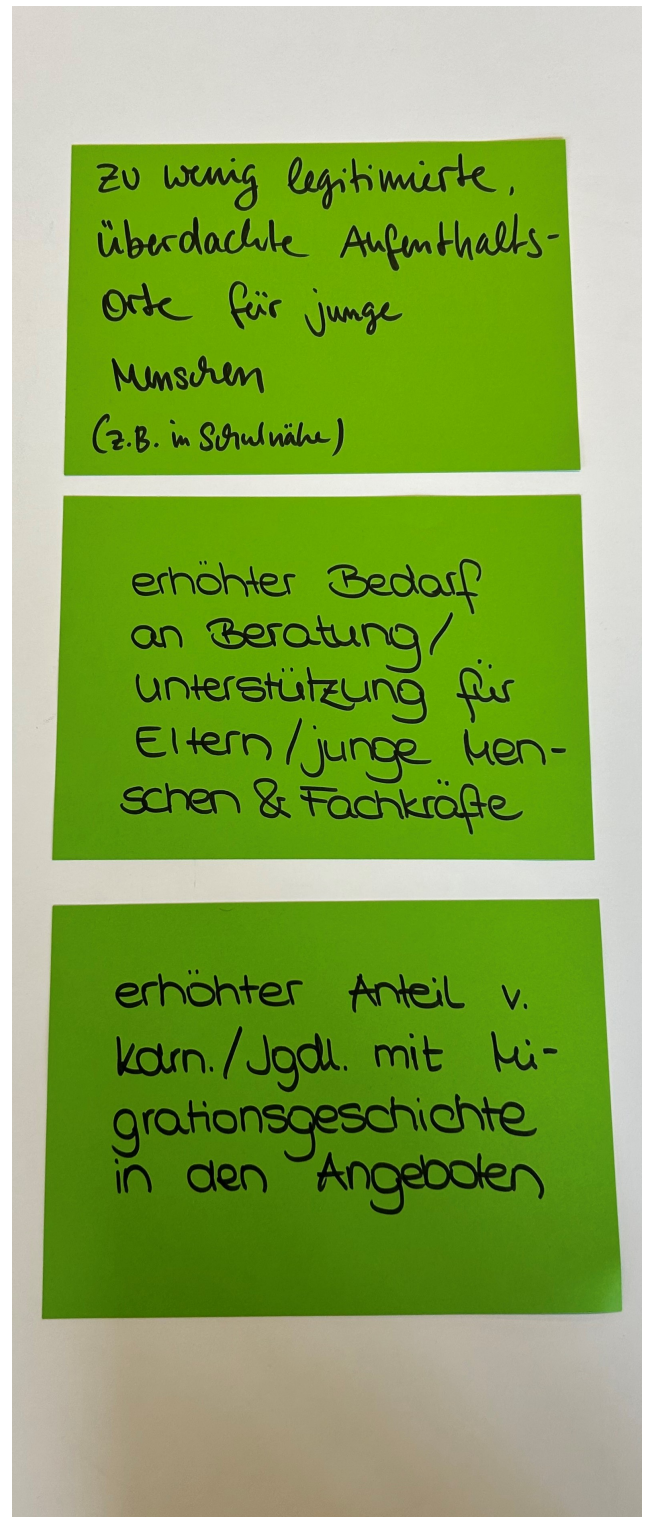 zu wenig legitimierte,
überdachte Aufenthalts-
Orte für junge
Menschen
(z.B. in Schulnähe)
erhöhter Bedarf
an Beratung/
unterstützung für
Eltern/junge Men-
schen & Fachkräfte
erhöhter Anteil v.
Kdrn./Jgdl. mit Mi-
grationsgeschichte
in den Angeboten